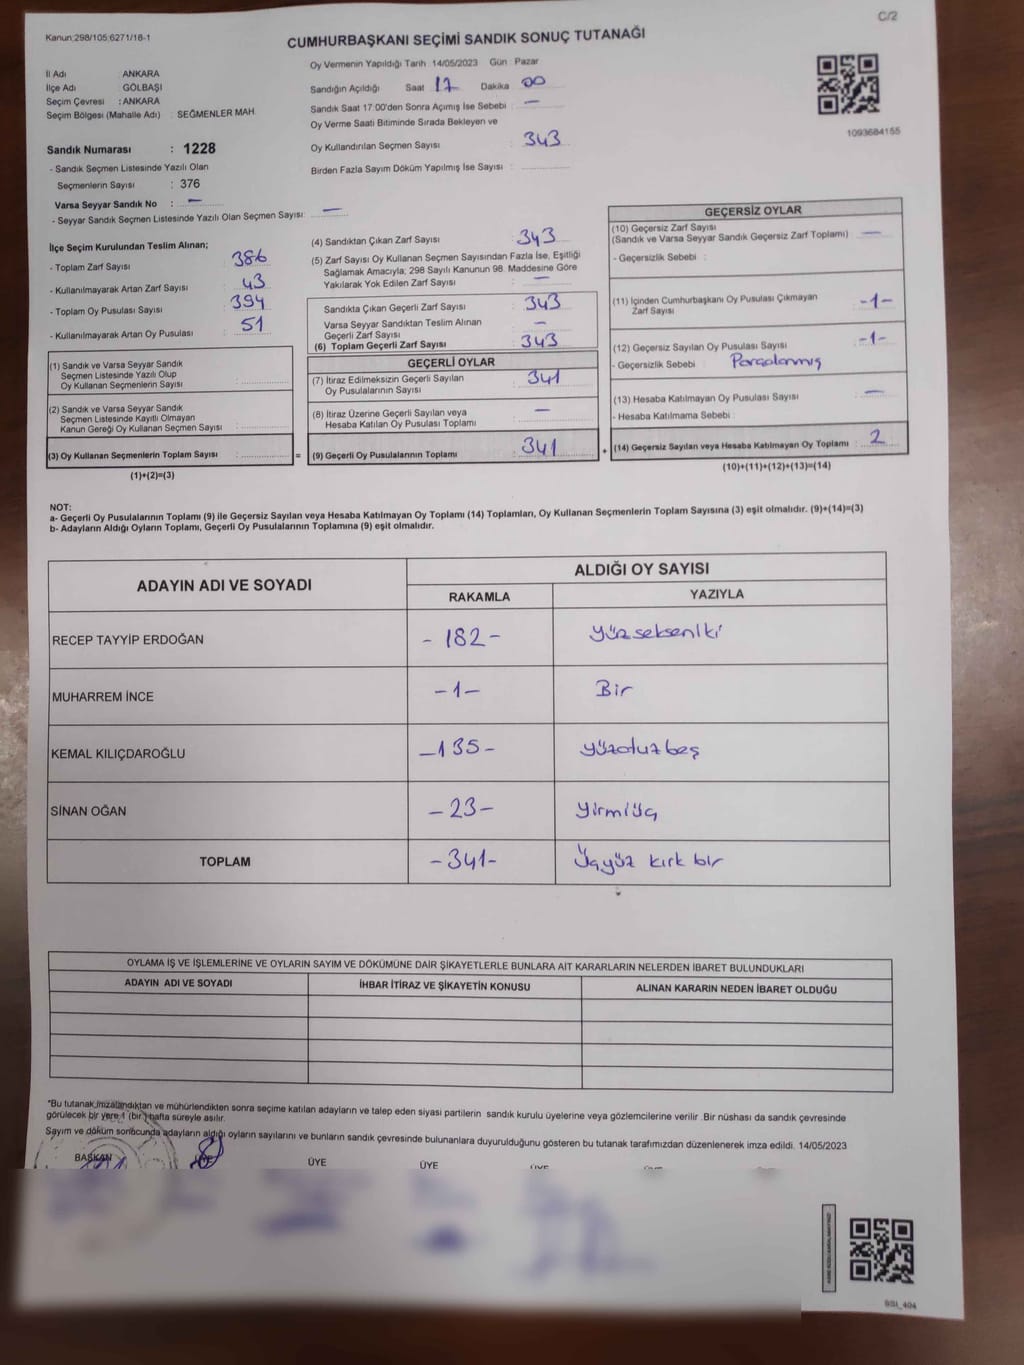 C/2
Kanun:298/105;6271/18-1
CUMHURBAŞKANI SEÇİMİ SANDIK SONUÇ TUTANAĞI
İl Adı : ANKARA
İlçe Adı : GÖLBAŞI
Seçim Çevresi : ANKARA
Seçim Bölgesi (Mahalle Adı) : SEĞMENLER MAH.
Sandık Numarası : 1228
- Sandık Seçmen Listesinde Yazılı Olan
Seçmenlerin Sayısı : 376
Varsa Seyyar Sandık No : —
- Seyyar Sandık Seçmen Listesinde Yazılı Olan Seçmen Sayısı: —
Oy Vermenin Yapıldığı Tarih :14/05/2023 Gün : Pazar
Sandığın Açıldığı Saat : 17 Dakika : 00
Sandık Saat 17:00'den Sonra Açımış İse Sebebi : —
Oy Verme Saati Bitiminde Sırada Bekleyen ve
Oy Kullandırılan Seçmen Sayısı : 343
Birden Fazla Sayım Döküm Yapılmış İse Sayısı :
1093684155
İlçe Seçim Kurulundan Teslim Alınan;
- Toplam Zarf Sayısı : 386
- Kullanılmayarak Artan Zarf Sayısı : 43
- Toplam Oy Pusulası Sayısı : 394
- Kullanılmayarak Artan Oy Pusulası : 51
(1) Sandık ve Varsa Seyyar Sandık
Seçmen Listesinde Yazılı Olup
Oy Kullanan Seçmenlerin Sayısı :
(2) Sandık ve Varsa Seyyar Sandık
Seçmen Listesinde Kayıtlı Olmayan
Kanun Gereği Oy Kullanan Seçmen Sayısı :
(3) Oy Kullanan Seçmenlerin Toplam Sayısı :
(1)+(2)=(3)
=
(4) Sandıktan Çıkan Zarf Sayısı : 343
(5) Zarf Sayısı Oy Kullanan Seçmen Sayısından Fazla İse, Eşitliği
Sağlamak Amacıyla; 298 Sayılı Kanunun 98. Maddesine Göre
Yakılarak Yok Edilen Zarf Sayısı : —
Sandıkta Çıkan Geçerli Zarf Sayısı : 343
Varsa Seyyar Sandıktan Teslim Alınan
Geçerli Zarf Sayısı : —
(6) Toplam Geçerli Zarf Sayısı : 343
GEÇERLİ OYLAR
(7) İtiraz Edilmeksizin Geçerli Sayılan
Oy Pusulalarının Sayısı : 341
(8) İtiraz Üzerine Geçerli Sayılan veya
Hesaba Katılan Oy Pusulası Toplamı : —
(9) Geçerli Oy Pusulalarının Toplamı : 341
+
GEÇERSİZ OYLAR
(10) Geçersiz Zarf Sayısı
(Sandık ve Varsa Seyyar Sandık Geçersiz Zarf Toplamı) : —
- Geçersizlik Sebebi :
(11) İçinden Cumhurbaşkanı Oy Pusulası Çıkmayan
Zarf Sayısı : -1-
(12) Geçersiz Sayılan Oy Pusulası Sayısı : -1-
- Geçersizlik Sebebi : Parçalanmış
(13) Hesaba Katılmayan Oy Pusulası Sayısı : —
- Hesaba Katılmama Sebebi :
(14) Geçersiz Sayılan veya Hesaba Katılmayan Oy Toplamı : 2
(10)+(11)+(12)+(13)=(14)
NOT:
a- Geçerli Oy Pusulalarının Toplamı (9) ile Geçersiz Sayılan veya Hesaba Katılmayan Oy Toplamı (14) Toplamları, Oy Kullanan Seçmenlerin Toplam Sayısına (3) eşit olmalıdır. (9)+(14)=(3)
b- Adayların Aldığı Oyların Toplamı, Geçerli Oy Pusulalarının Toplamına (9) eşit olmalıdır.
ADAYIN ADI VE SOYADI
ALDIĞI OY SAYISI
RAKAMLA YAZIYLA
RECEP TAYYİP ERDOĞAN -182- Yüzsekseniki
MUHARREM İNCE -1- Bir
KEMAL KILIÇDAROĞLU -135- yüzotuzbeş
SİNAN OĞAN -23- yirmiüç
TOPLAM -341- Üçyüz kırk bir
OYLAMA İŞ VE İŞLEMLERİNE VE OYLARIN SAYIM VE DÖKÜMÜNE DAİR ŞİKAYETLERLE BUNLARA AİT KARARLARIN NELERDEN İBARET BULUNDUKLARI
ADAYIN ADI VE SOYADI İHBAR İTİRAZ VE ŞİKAYETİN KONUSU ALINAN KARARIN NEDEN İBARET OLDUĞU
*Bu tutanak,imzalandıktan ve mühürlendikten sonra seçime katılan adayların ve talep eden siyasi partilerin sandık kurulu üyelerine veya gözlemcilerine verilir .Bir nüshası da sandık çevresinde
görülecek bir yere 1 (bir) hafta süreyle asılır.
Sayım ve döküm sonucunda adayların aldığı oyların sayılarını ve bunların sandık çevresinde bulunanlara duyurulduğunu gösteren bu tutanak tarafımızdan düzenlenerek imza edildi. 14/05/2023
BAŞKAN ÜYE ÜYE ÜYE